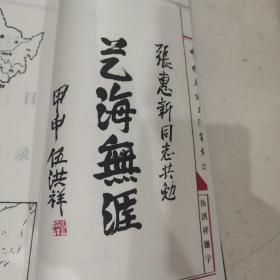 張惠新同志共勉
艺海無涯
甲申 伍洪祥
伍洪祥题字
目录